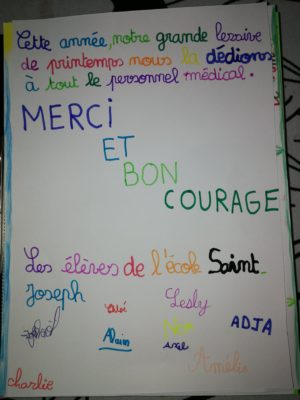 Cette année, notre grande lessive
de printemps nous la dédions
à tout le personnel médical.
MERCI
ET
BON
COURAGE
Les élèves de l'école Saint-
Joseph
Lesly
Alvin
ADJA
Axel
Amélie
charlie